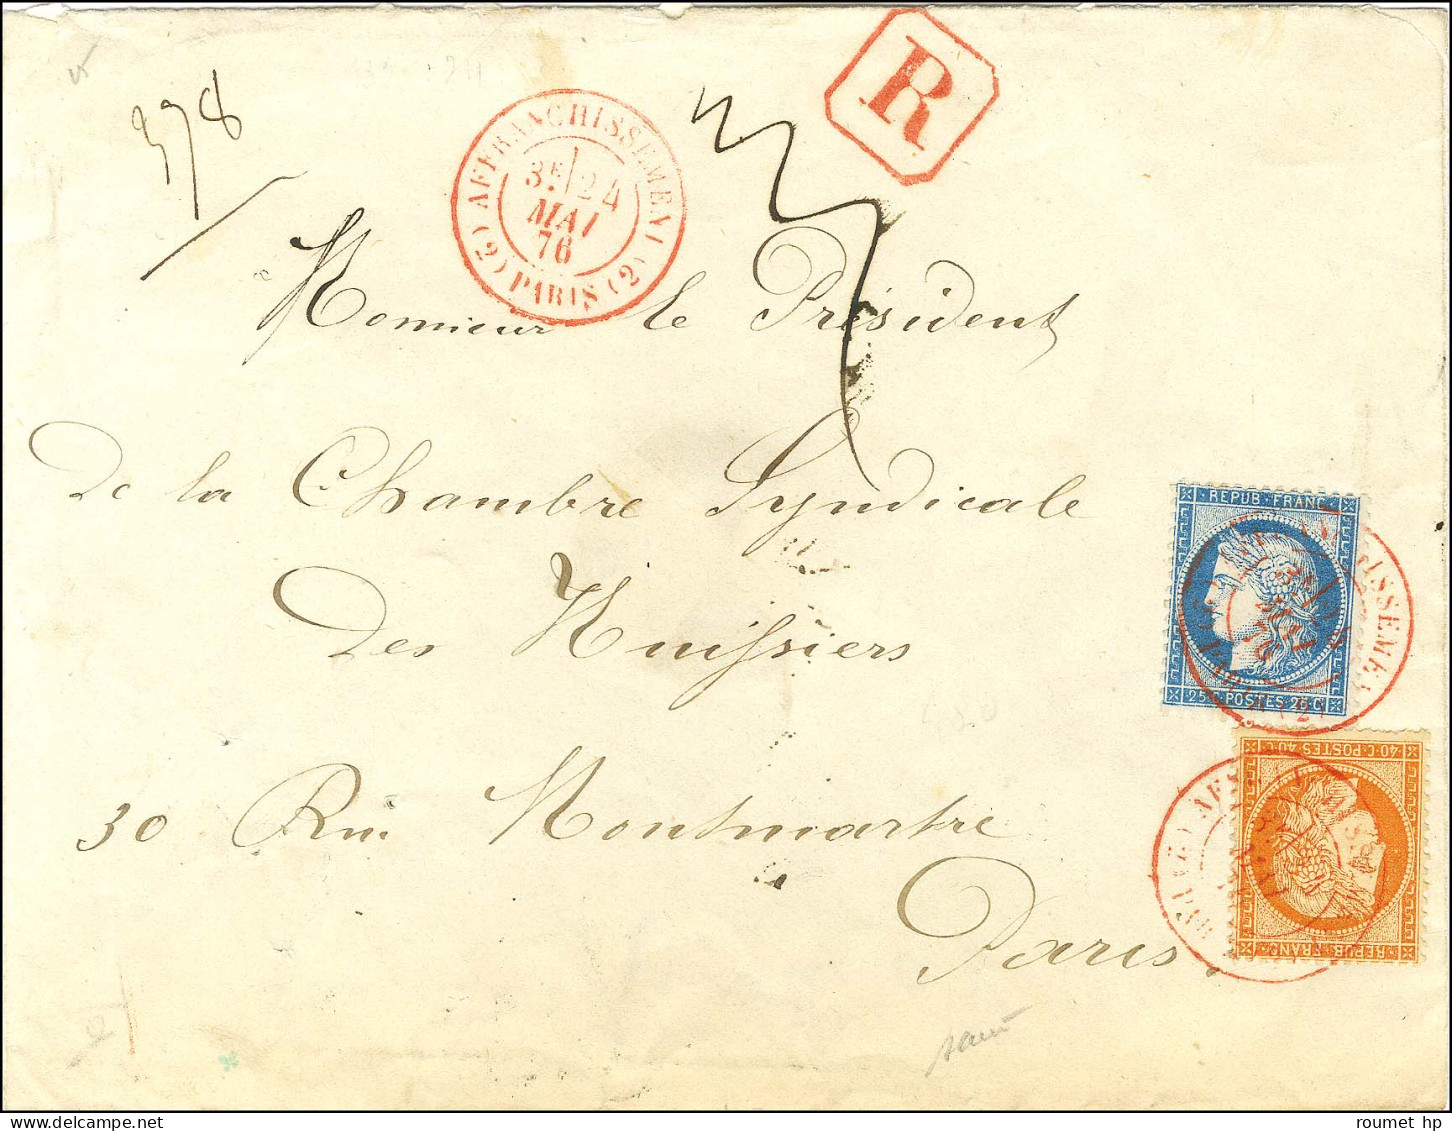 R
378
(2) AFFRANCHISSEMENT (2)
3E/24
MAI
76
PARIS
Monsieur le Président
De la Chambre Syndicale
Des Huissiers
30 Rue Montmartre
Paris.
REPUB·FRANC
25·C·POSTES 25 C
40·C·POSTES 40·C
REPUB·FRANC
roumet hp